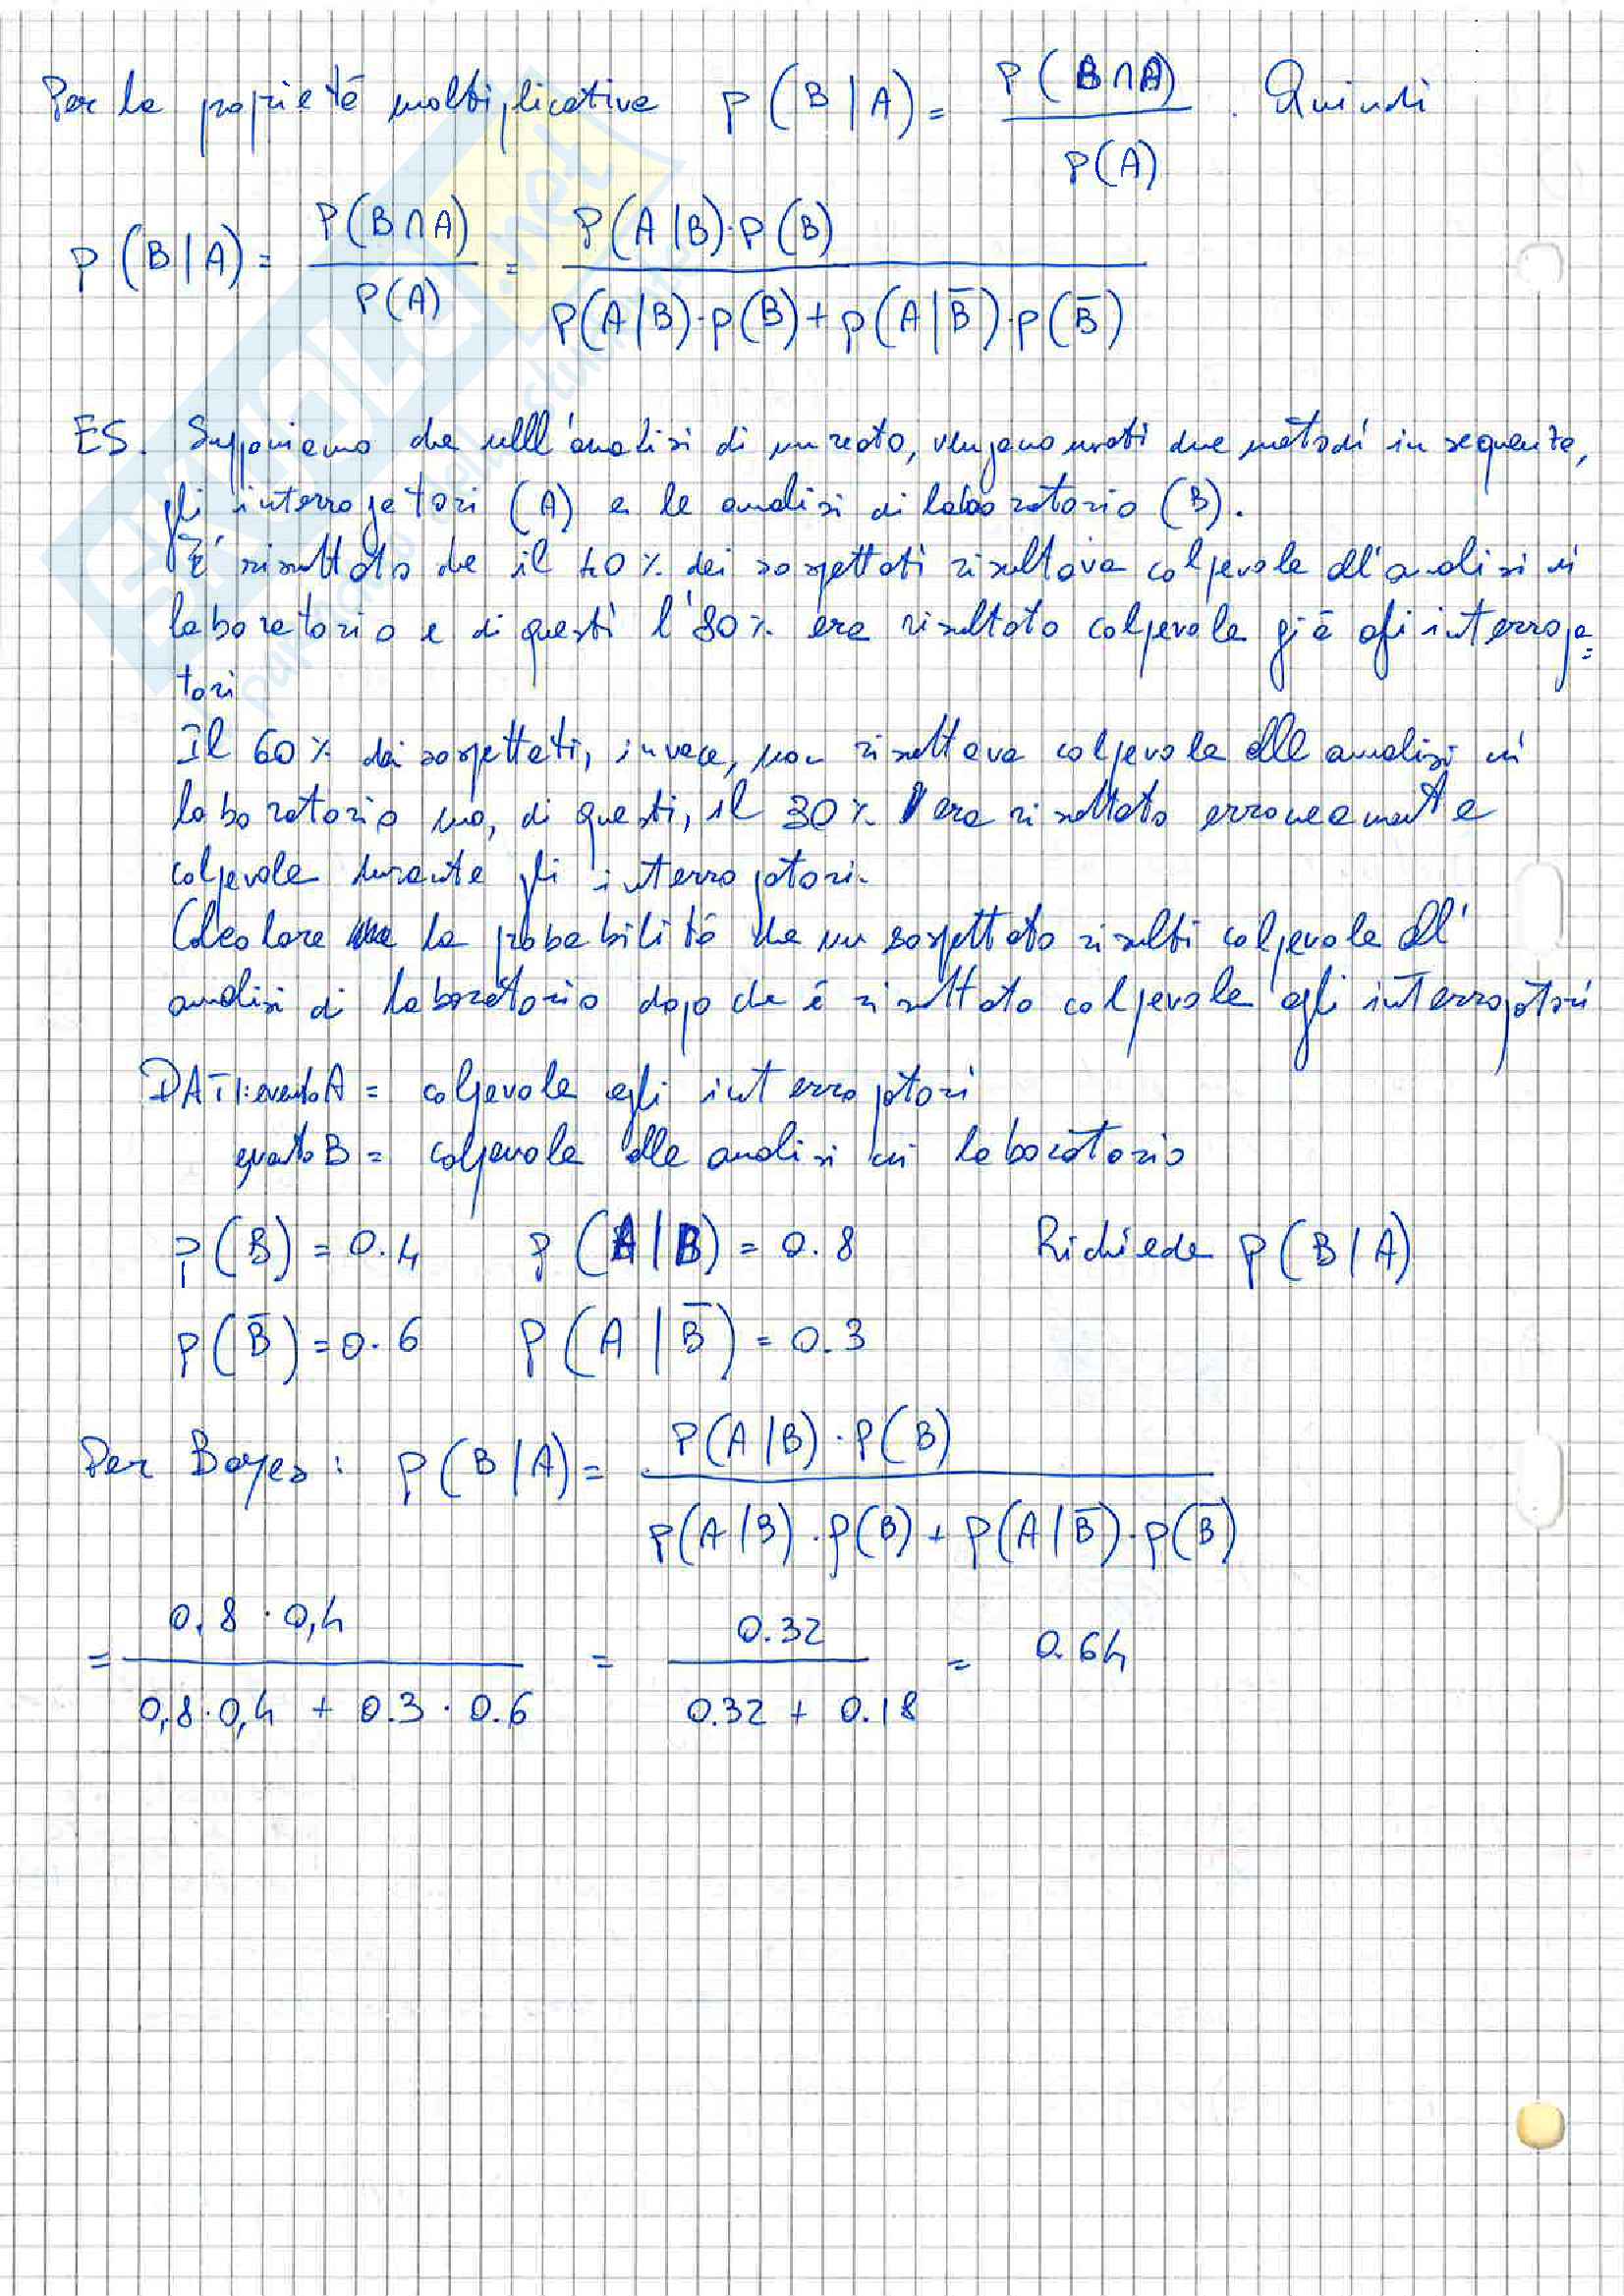 Per la proprietà moltiplicativa P(B|A) = P(B∩A) / P(A) . Quindi
P(B|A) = P(B∩A) / P(A) = P(A|B)·P(B) / P(A|B)·P(B) + P(A|B̄)·P(B̄)
ES. Supponiamo che nelll'analisi di un reato, vengano usati due metodi in sequenza,
gli interrogatori (A) e le analisi di laboratorio (B).
È risultato che il 40% dei sospettati risultava colpevole all'analisi di
laboratorio e di questi l'80% era risultato colpevole già agli interroga=
tori
Il 60% dei sospettati, invece, non risultava colpevole alle analisi di
laboratorio ma, di questi, il 30% era risultato erroneamente
colpevole durante gli interrogatori.
Calcolare la probabilità che un sospettato risulti colpevole all'
analisi di laboratorio dopo che è risultato colpevole agli interrogatori
DATI: evento A = colpevole agli interrogatori
evento B = colpevole alle analisi di laboratorio
P(B) = 0.4 P(A|B) = 0.8 Richiede P(B|A)
P(B̄) = 0.6 P(A|B̄) = 0.3
Per Bayes: P(B|A) = P(A|B)·P(B) / P(A|B)·P(B) + P(A|B̄)·P(B̄)
= 0.8·0,4 / 0,8·0,4 + 0.3·0.6 = 0.32 / 0.32 + 0.18 = 0.64